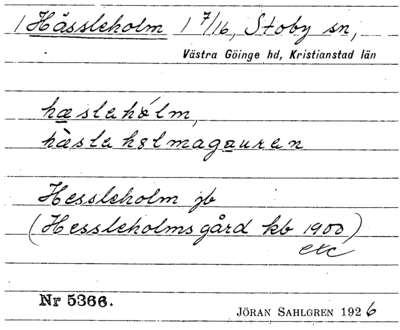 1 Hässleholm 1 7/16, Stoby sn,
Västra Göinge hd, Kristianstad län
hæsleholm,
hæsleholmagauren
Hessleholm jb
(Hessleholms gård kb 1900)
etc
Nr 5366.
JÖRAN SAHLGREN 1926